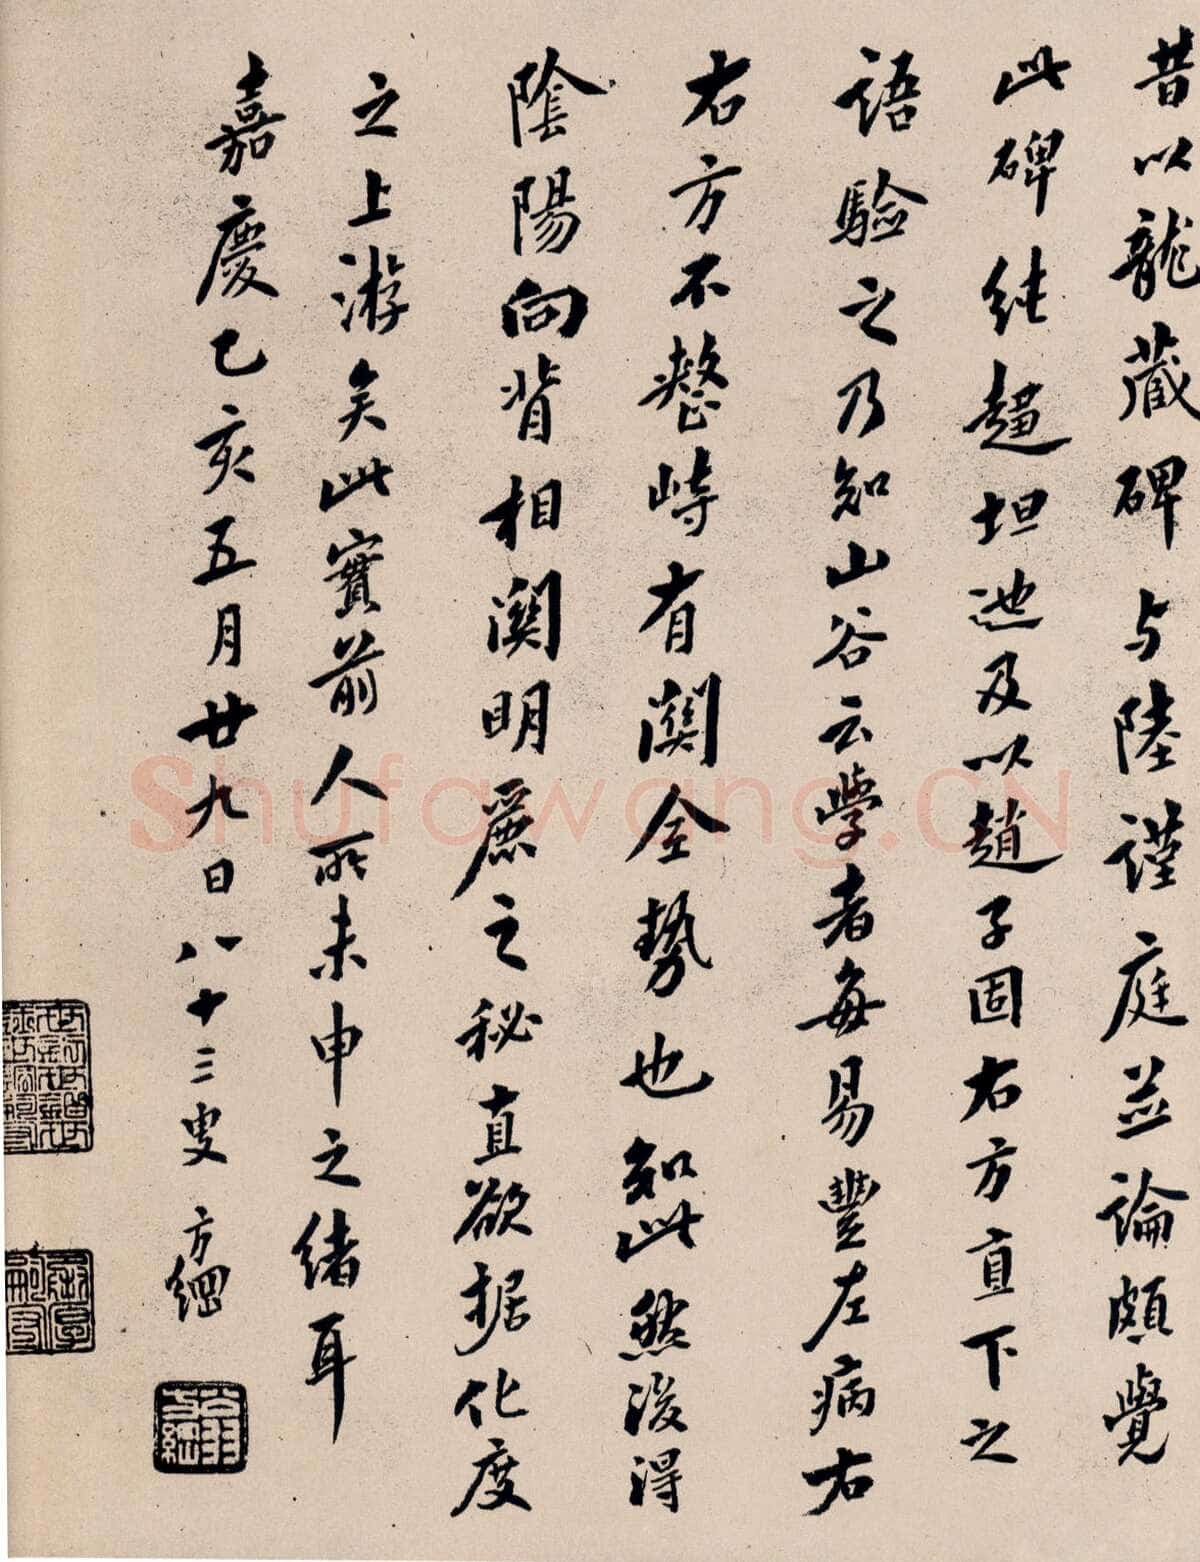 昔以龍藏碑与陸謹庭並論頗覺
此碑純趨坦迆及以趙子固右方直下之
語驗之乃知山谷云學者每易豐左病右
右方不整峙有闗全勢也如此然後得
陰陽向背相闗明麗之秘直欲據化度
之上游矣此實前人所未申之緒耳
嘉慶乙亥五月廿九日八十三叟 方綱
翁方綱
Shufawang.CN